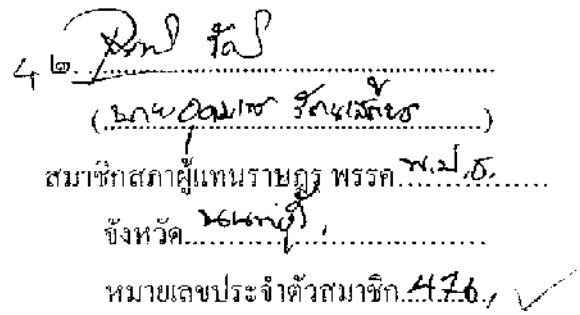 ๔๒.
(นายอุดมเดช รัตนเสถียร)
สมาชิกสภาผู้แทนราษฎร พรรค พ.ป.ช.
จังหวัด นนทบุรี
หมายเลขประจำตัวสมาชิก 476